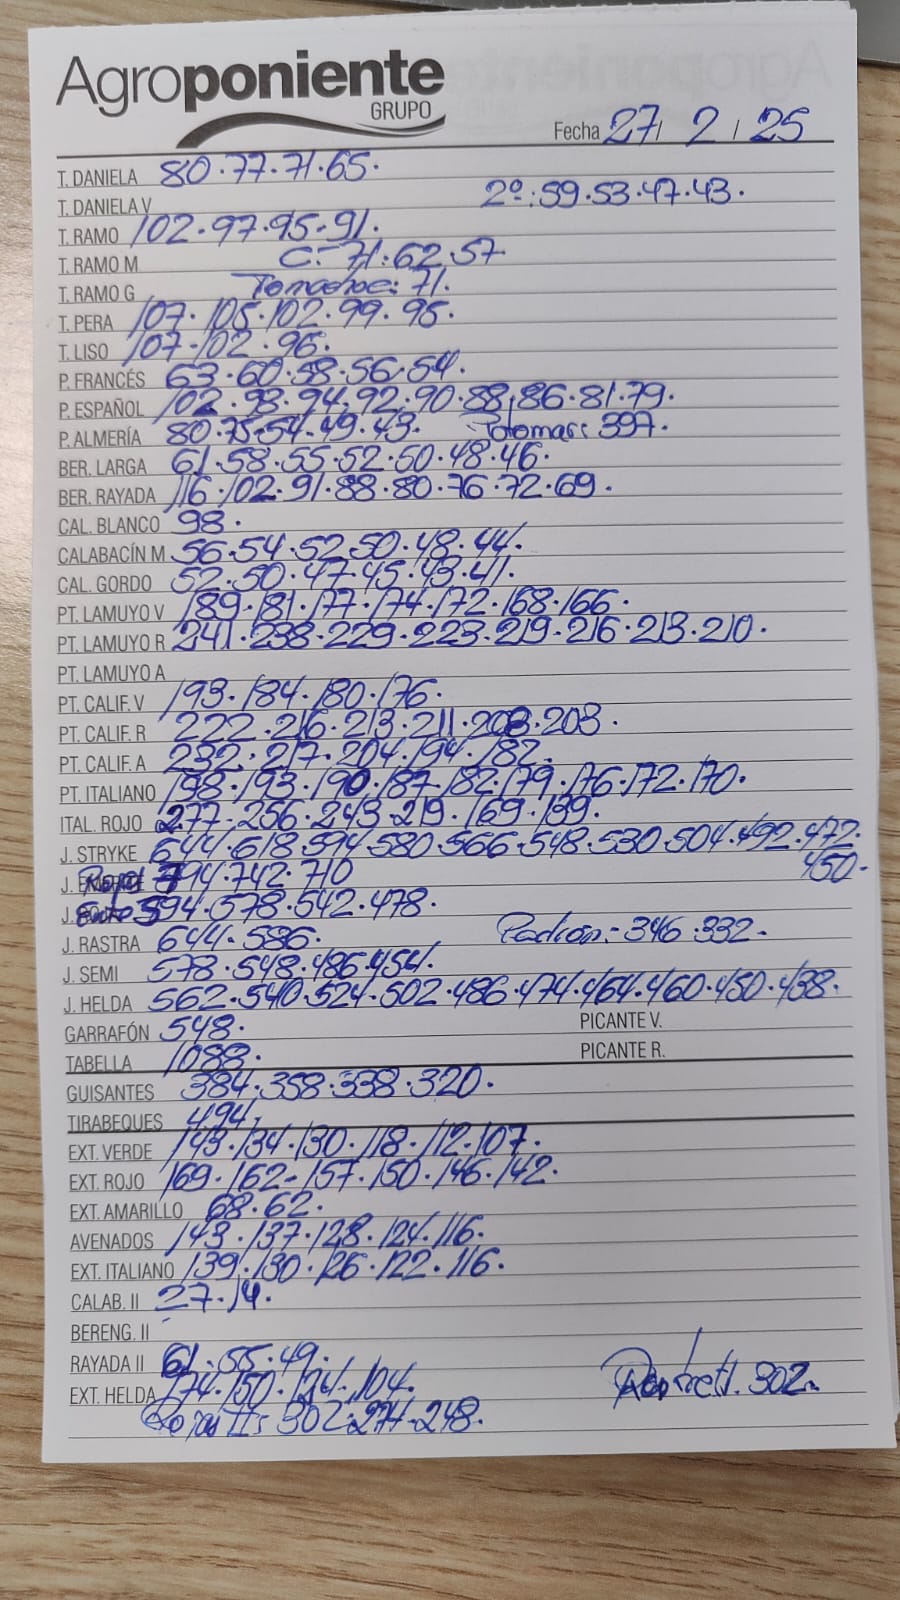 Agroponiente
GRUPO
Fecha 27/ 2 / 25
T. DANIELA 80.77.71.65.
T. DANELA V 2º:59.53.47.43.
T. RAMO 102.97.95.91.
T. RAMO M C:- 71.62.57
T. RAMO G 71.
T. PERA 107.105.102.99.95.
T. LISO 107-102.96.
P. FRANCÉS 63.60.58.56.54.
P. ESPAÑOL 102.98.94.92.90.88.86.81.79.
P. ALMERÍA 80.75-54.49.43. 397.
BER. LARGA 61.58.55.52.50.48.46.
BER. RAYADA 116.102.91.88.80.76.72.69.
CAL. BLANCO 98.
CALABACÍN M 56.54.52.50.48.44.
CAL. GORDO 52.50.47.45.43.41.
PT. LAMUYO V 189.181.177.174.172.168.166.
PT. LAMUYO R 241.238.229.223.219.216.213.210.
PT. LAMUYO A
PT. CALIF. V 193.184.180.176.
PT. CALIF. R 222.216.213.211.208.203.
PT. CALIF. A 232.217.204.194.182.
PT. ITALIANO 198.193.190.187.182.179.176.172.170.
ITAL. ROJO 277-256.243.219.169.139.
J. STRYKE 644.618.594.580.566.548.530.504.492.472.
450.
J. Roja 794.742.710
J. 594.578.542.478.
J. RASTRA 644.586. Padron:-346.332.
J. SEMI 578.548.486.454.
J. HELDA 562.540.524.502.486.474.464.460.450.438.
GARRAFÓN 548. PICANTE V.
TABELLA 1088. PICANTE R.
GUISANTES 384.358.338.320.
TIRABEQUES 494.
EXT. VERDE 143.134.130.118.112.107.
EXT. ROJO 169.162-157.150.146.142.
EXT. AMARILLO 68.62.
AVENADOS 143.137.128.124.116.
EXT. ITALIANO 139.130.126.122.116.
CALAB. II 27.14.
BERENG. II
RAYADA II 61.55.49.
EXT. HELDA 174.150.124.104. 302.
Roja II: 302.274-248.